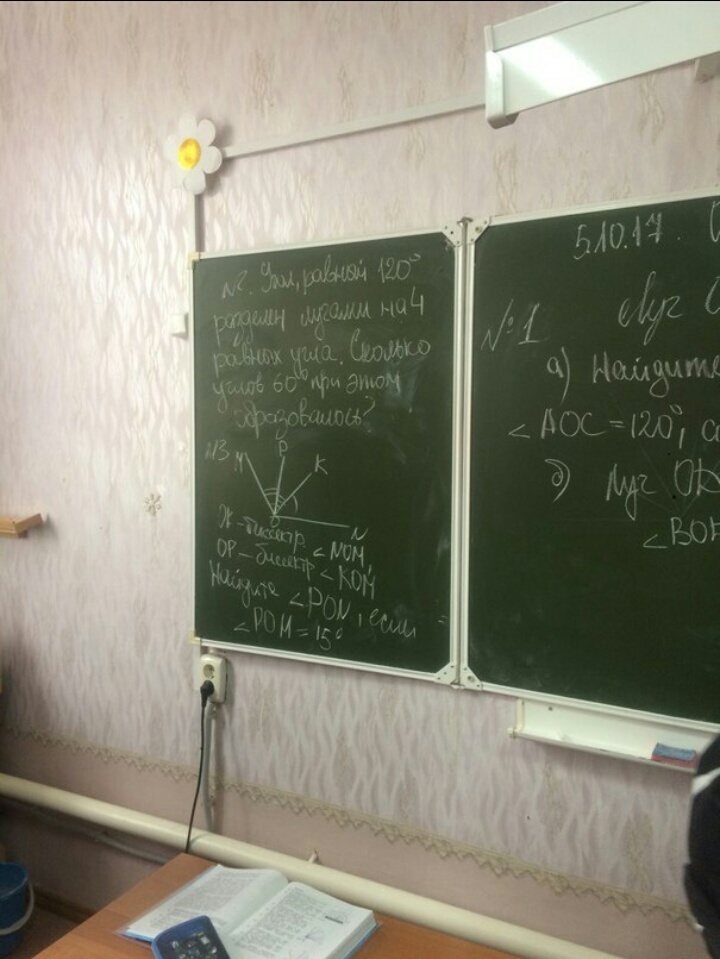 №2. Угол, равный 120°
разделен лучами на 4
равных угла. Сколько
углов 60° при этом
образовалось?
№3
M
P
K
O
N
OK - биссектр. ∠NOM,
OP - биссектр ∠KOM
Найдите ∠PON, если
∠POM = 15°
5.10.17.
№1
Луч
а) Найдите
∠AOC = 120°,
б) Луч